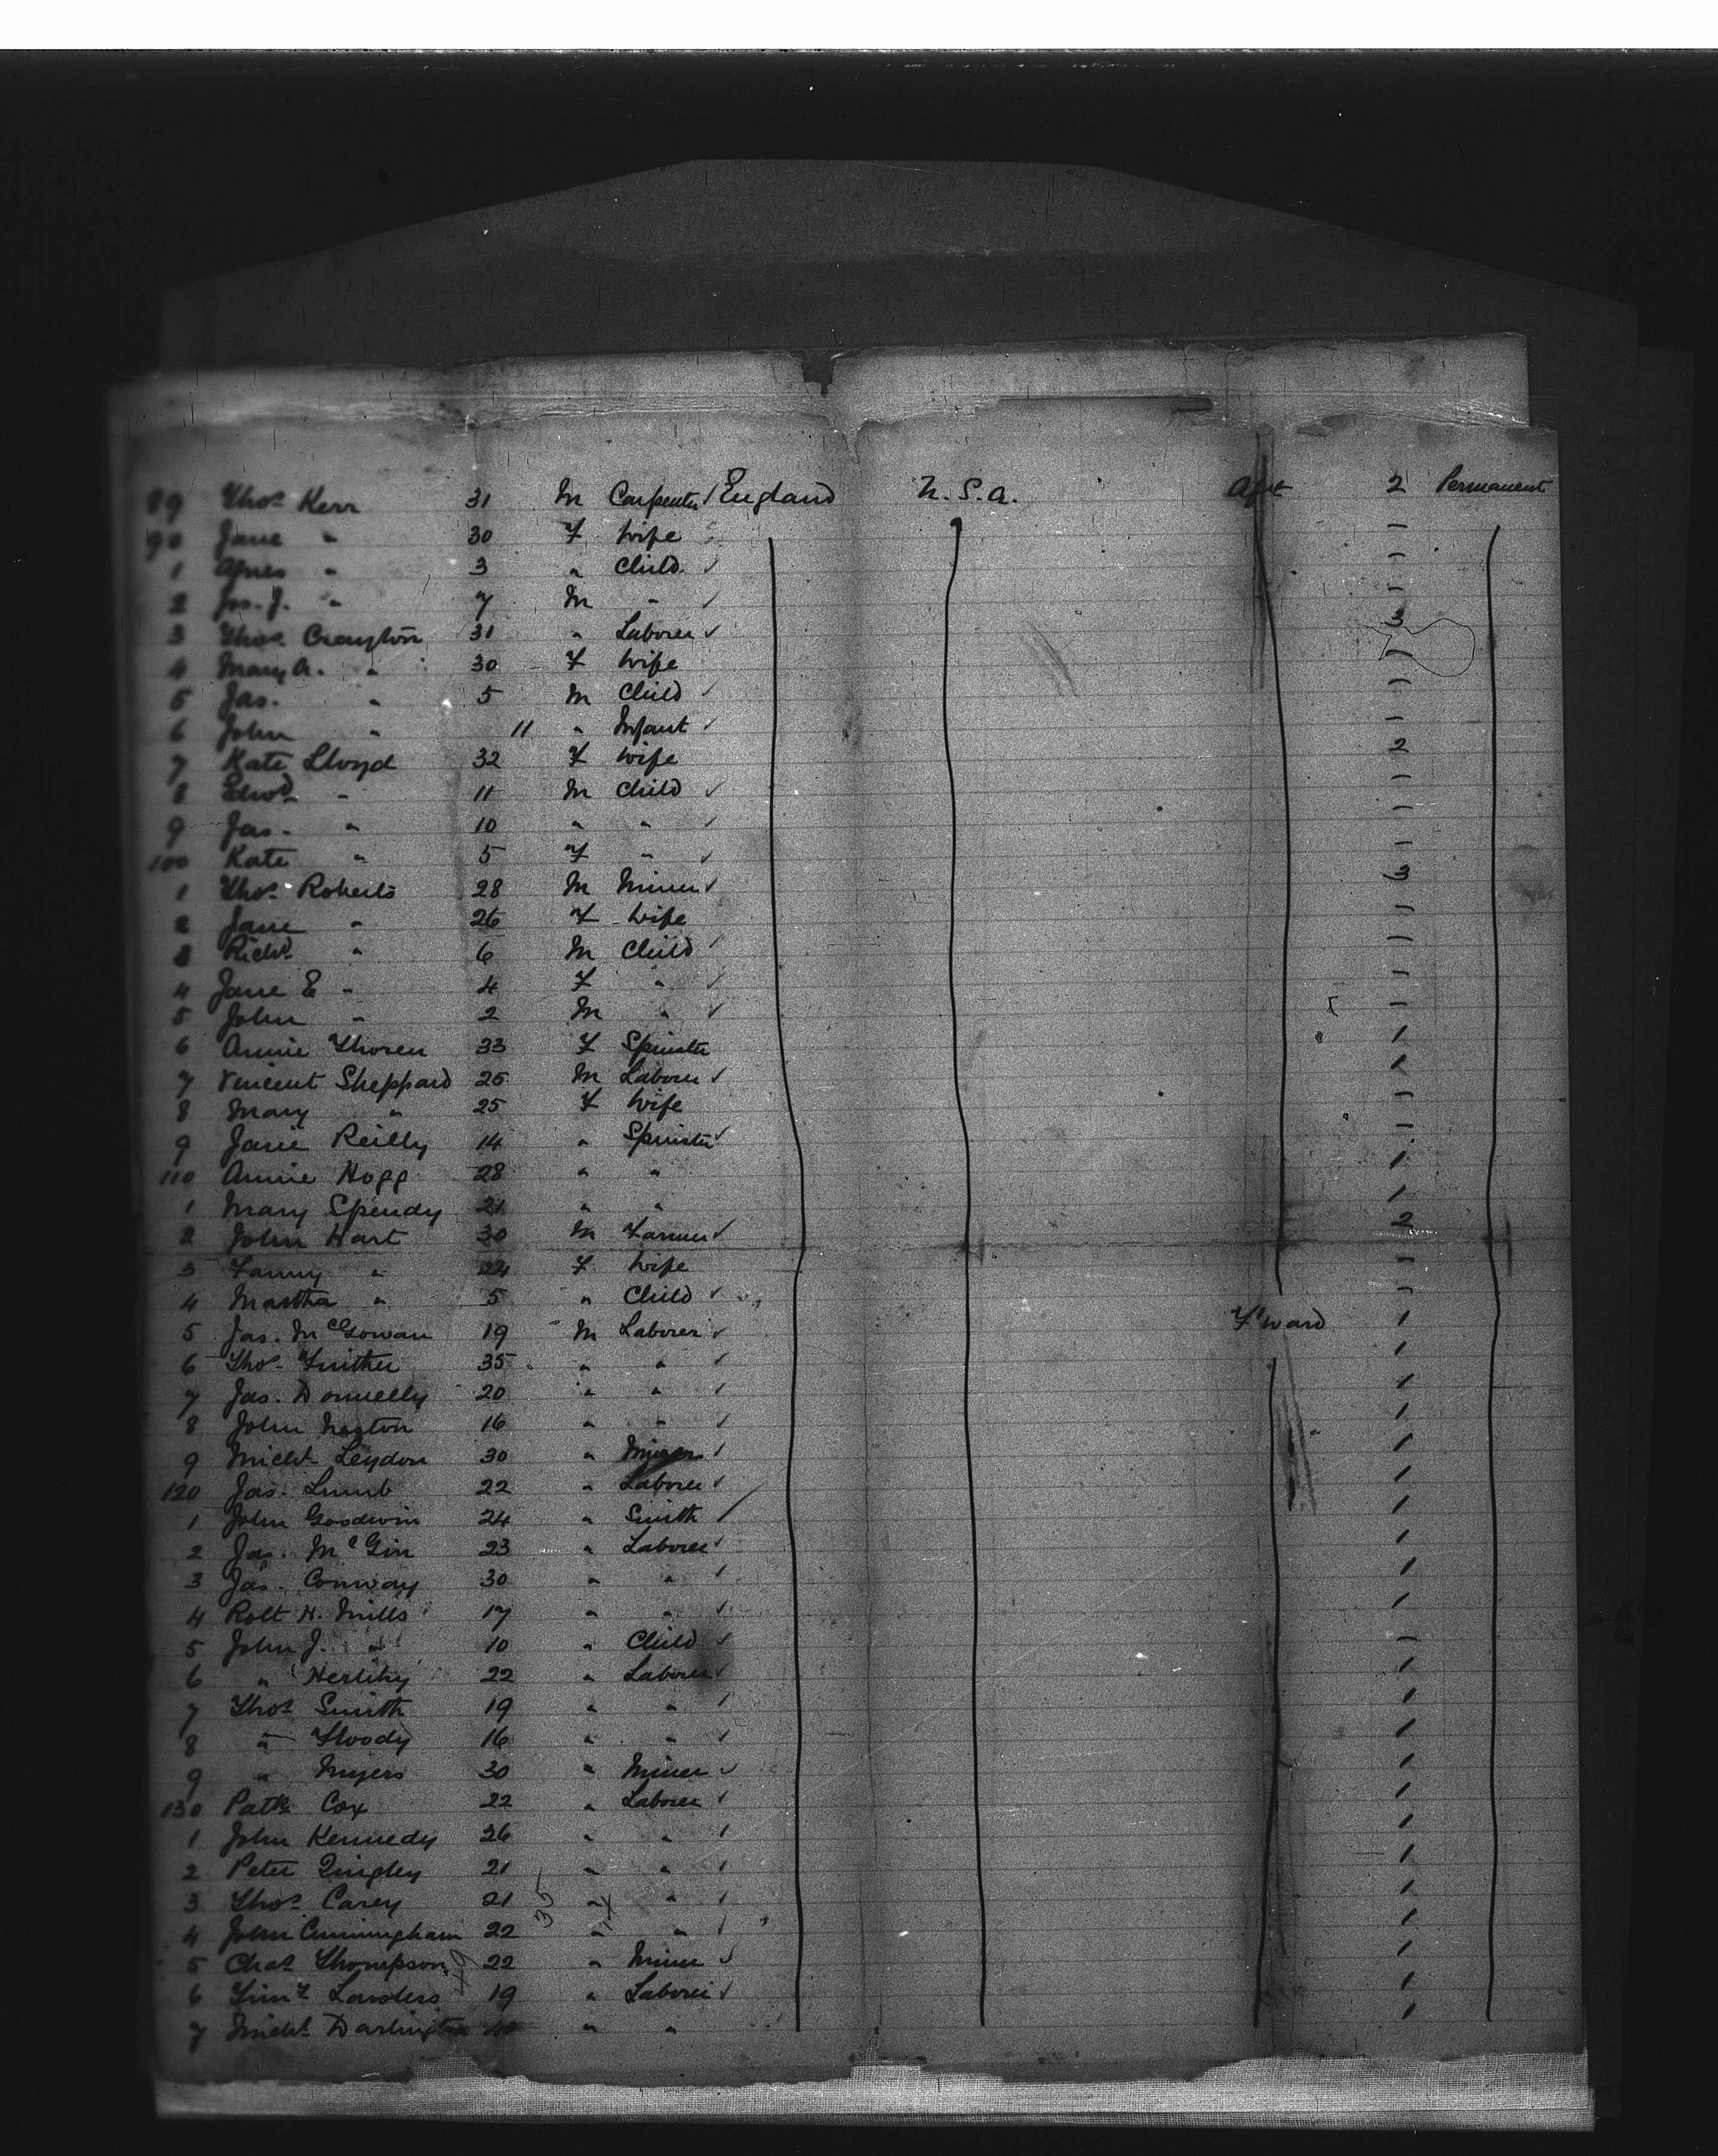 89 Thos. Kerr 31 M Carpenter / England U.S.A. Aft 2 Permanent
90 Jane " 30 F Wife –
1 Agnes " 3 " Child ✓ –
2 Jos. J. " 7 M " ✓ –
3 Thos. Crayton 31 " Laborer ✓ 3
4 Mary A. " 30 F Wife –
5 Jas. " 5 M Child ✓ –
6 John " 11 " Infant ✓ –
7 Kate Lloyd 32 F Wife 2
8 Edwd. " 11 M Child ✓ –
9 Jas. " 10 " " ✓ –
100 Kate " 5 F " ✓ –
1 Thos. Roberts 28 M Miner ✓ 3
2 Jane " 26 F Wife –
3 Richd. " 6 M Child ✓ –
4 Jane E " 4 F " ✓ –
5 John " 2 M " ✓ –
6 Annie Thoren 33 F Spinster 1
7 Vincent Sheppard 25 M Laborer ✓ 1
8 Mary " 25 F Wife –
9 Janie Reilly 14 " Spinster ✓ –
110 Annie Hogg 28 " " 1
1 Mary Spendy 21 " " 1
2 John Hart 30 M Farmer ✓ 2
3 Fanny " 24 F Wife –
4 Martha " 5 " Child ✓ –
5 Jas. McGowan 19 M Laborer ✓ F'ward 1
6 Thos. 35 " " ✓ 1
7 Jas. Donnelly 20 " " ✓ 1
8 John 16 " " ✓ 1
9 Michl. Leydon 30 " Miner ✓ 1
120 Jas. Lumb 22 " Laborer ✓ 1
1 John Goodwin 24 " Smith ✓ 1
2 Jas. McGin 23 " Laborer ✓ 1
3 Jas. Conway 30 " " ✓ 1
4 Robt H. Mills 17 " " ✓ 1
5 John J. " 10 " Child ✓ –
6 " Herlihy 22 " Laborer ✓ 1
7 Thos. Smith 19 " " ✓ 1
8 " Floody 16 " " ✓ 1
9 " Myers 30 " Miner ✓ 1
130 Patk. Cox 22 " Laborer ✓ 1
1 John Kennedy 26 " " ✓ 1
2 Peter Quigley 21 " " ✓ 1
3 Thos. Carey 21 " " ✓ 1
4 John Cunningham 22 " " ✓ 1
5 Chas. Thompson 22 " Miner ✓ 1
6 Timy. Landers 19 " Laborer ✓ 1
7 Michl. Darlington " " 1